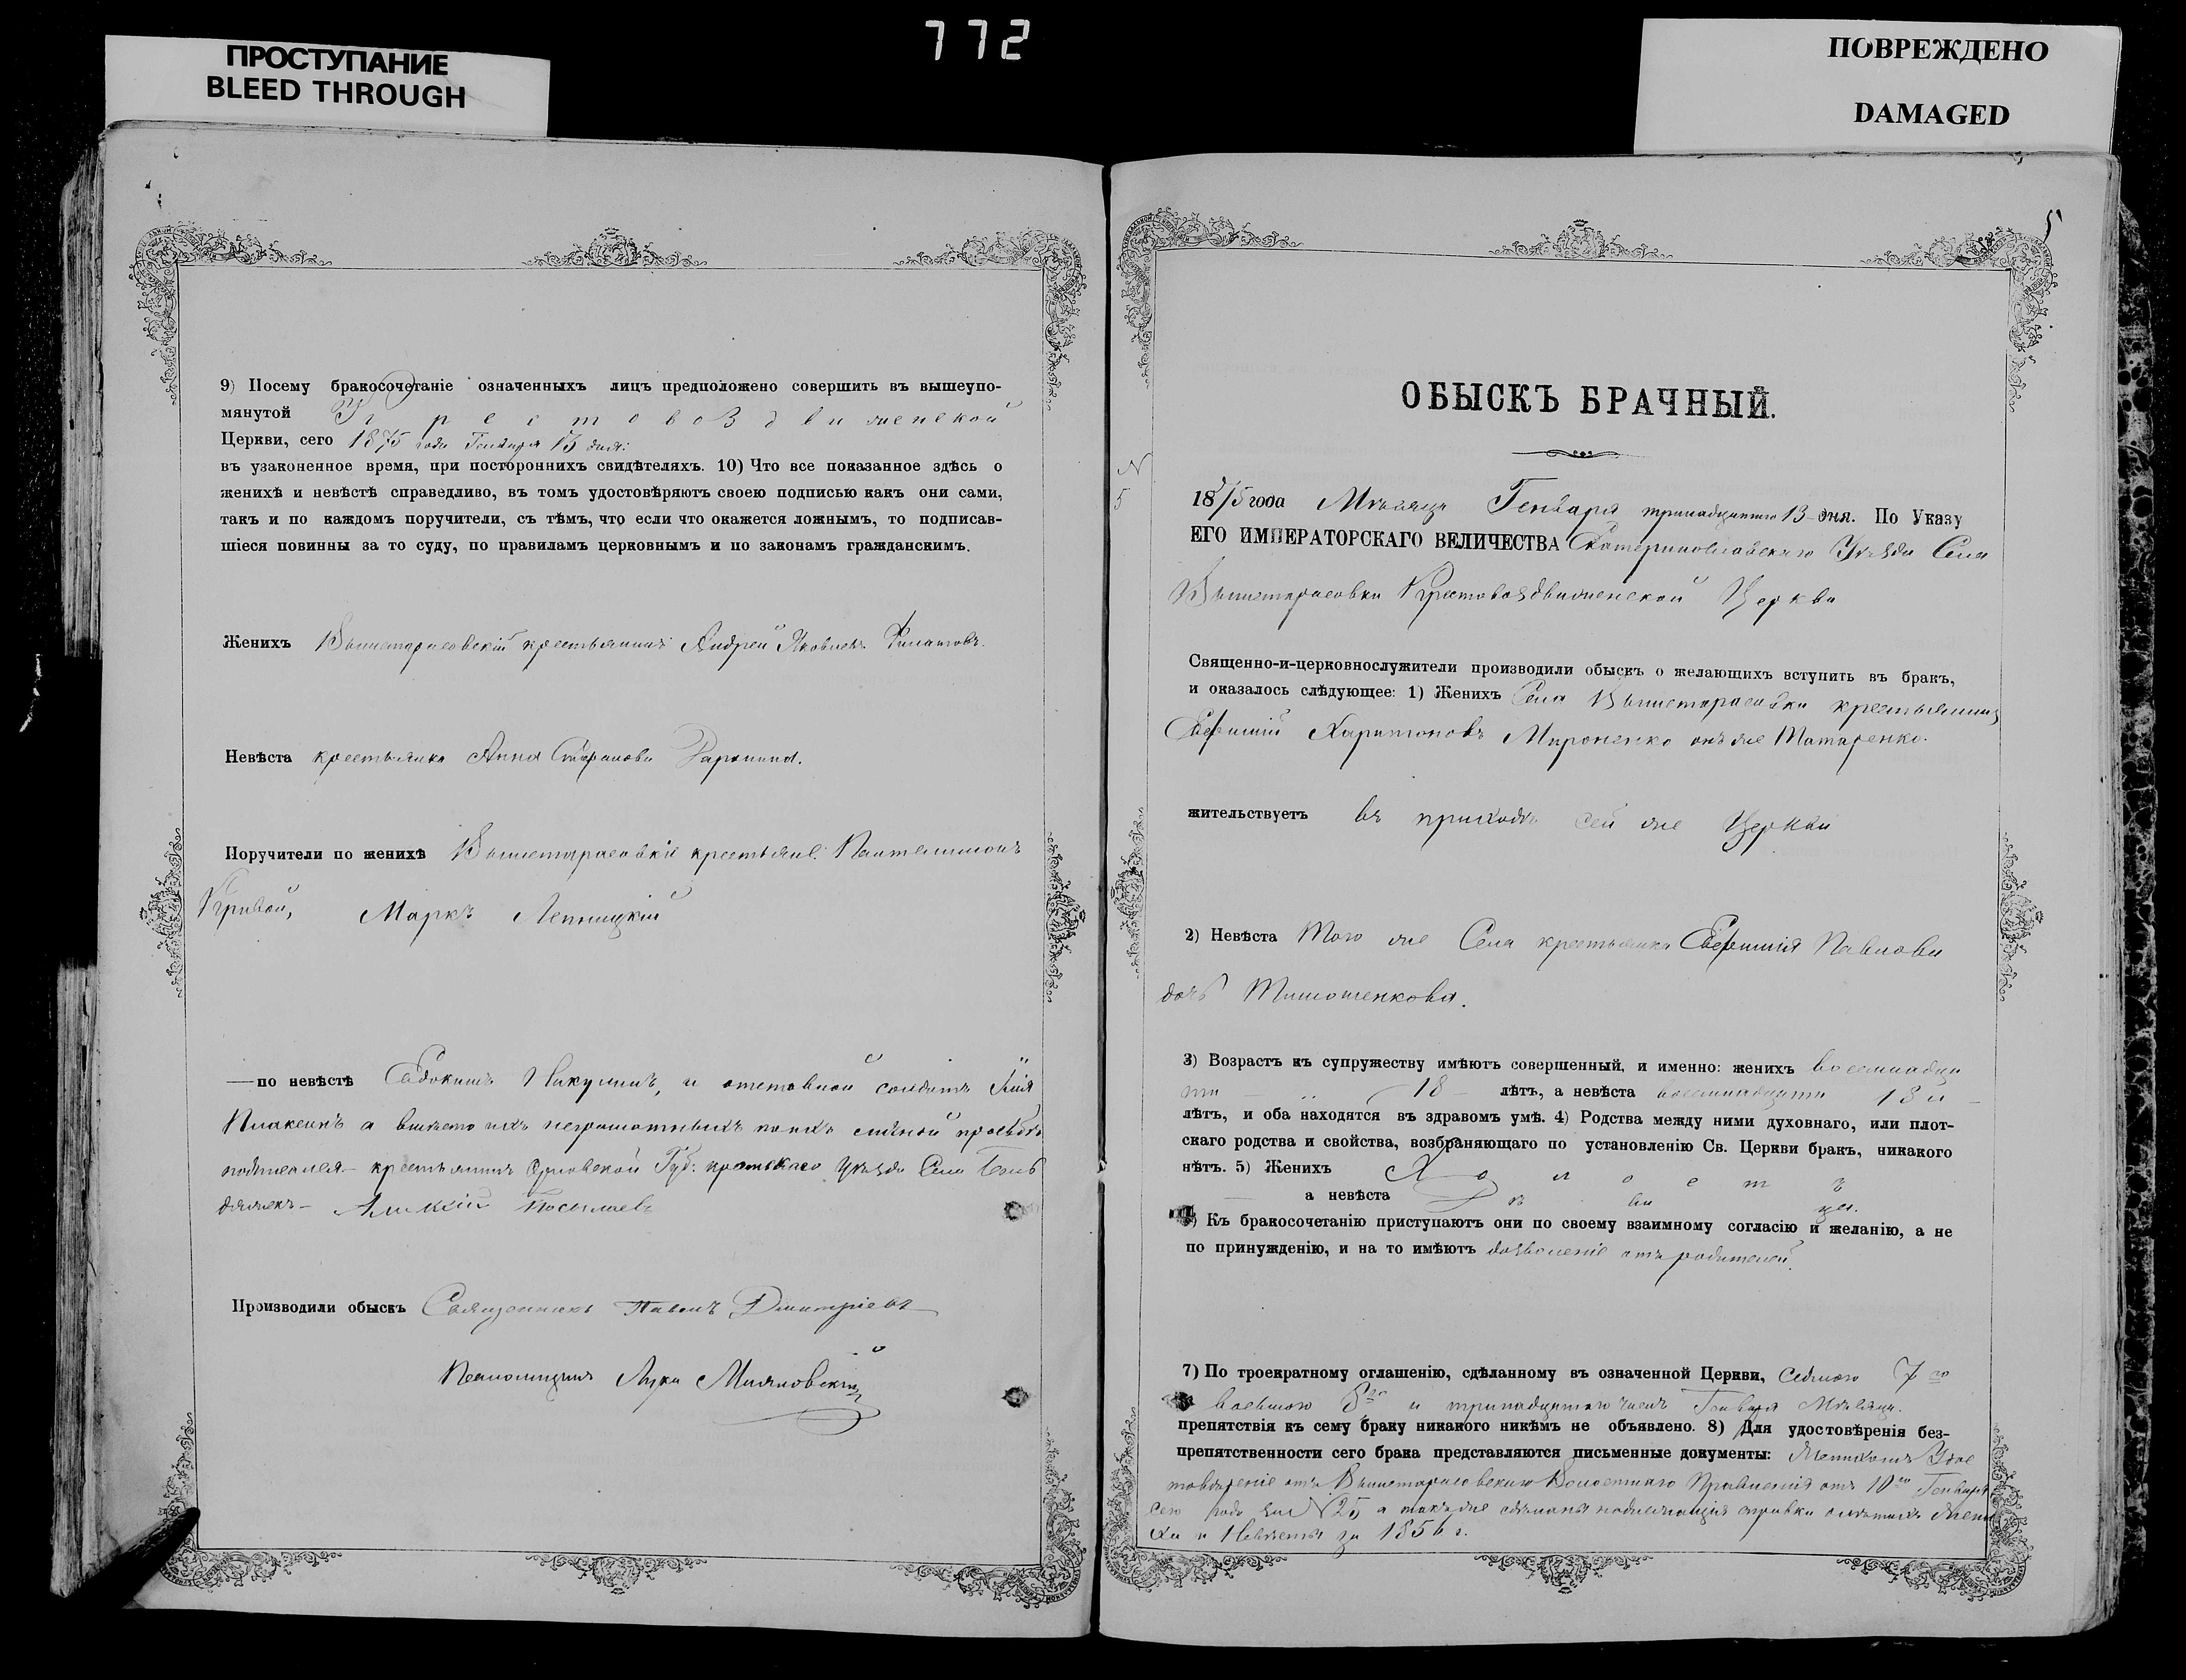 772
ПРОСТУПАНИЕ
BLEED THROUGH
ПОВРЕЖДЕНО
DAMAGED
9) Посему бракосочетаніе означенныхъ лицъ предположено совершить въ вышеупо-
мянутой Крестовоздвиженской
Церкви, сего 1875 года Генваря 13 дня:
въ узаконенное время, при постороннихъ свидѣтеляхъ. 10) Что все показанное здѣсь о
женихѣ и невѣстѣ справедливо, въ томъ удостовѣряютъ своею подписью какъ они сами,
такъ и по каждомъ поручители, съ тѣмъ, что если что окажется ложнымъ, то подписав-
шіеся повинны за то суду, по правиламъ церковнымъ и по законамъ гражданскимъ.
Женихъ Вышетарасовскій крестьянинъ Андрей Яковлевъ Филатовъ.
Невѣста крестьянка Анна Стефанова
Поручители по женихѣ Вышетарасовскіе крестьяне: Пантелимонъ
Кривой, Маркъ Лепницкій
— по невѣстѣ Евдокимъ Никулинъ, и отставной солдатъ
а вмѣсто ихъ неграмотныхъ по ихъ личной прозьбѣ
подписался крестьянинъ Орловской Губ: уѣзда Села
Алексій
Производили обыскъ Священникъ Павелъ Дмитріевъ
Псаломщикъ Лука
5
ОБЫСКЪ БРАЧНЫЙ.
N
5
1875 года Мѣсяца Генваря тринадцатого 13 дня. По Указу
ЕГО ИМПЕРАТОРСКАГО ВЕЛИЧЕСТВА Екатеринославскаго Уѣзда Села
Вышетарасовки Крестовоздвиженской Церкви
Священно-и-церковнослужители производили обыскъ о желающихъ вступить въ бракъ,
и оказалось слѣдующее: 1) Женихъ Села Вышетарасовки крестьянинъ
Евфимій Харитоновъ Мироненко онъ же Татаренко.
жительствуетъ въ приходѣ сей же Церкви
2) Невѣста Того же Села крестьянка Евфимія Павлова
дочь Тимошенкова.
3) Возрастъ къ супружеству имѣютъ совершенный, и именно: женихъ восемнадца
ти — 18 — лѣтъ, а невѣста восемнадцати 18 и
лѣтъ, и оба находятся въ здравомъ умѣ. 4) Родства между ними духовнаго, или плот-
скаго родства и свойства, возбраняющаго по установленію Св. Церкви бракъ, никакого
нѣтъ. 5) Женихъ Холостъ
а невѣста Дѣвица.
6) Къ бракосочетанію приступаютъ они по своему взаимному согласію и желанію, а не
по принужденію, и на то имѣютъ дозволеніе отъ родителей.
7) По троекратному оглашенію, сдѣланному въ означенной Церкви, седмого 7го
восьмого 8го и тринадцатого чиселъ Генваря Мѣсяца.
препятствія къ сему браку никакого никѣмъ не объявлено. 8) Для удостовѣренія без-
препятственности сего брака представляются письменные документы: Женихомъ Удос
товѣреніе отъ Вышетарасовскаго Волостнаго Правленія отъ 10го Генваря
сего года за N 25 а также сдѣланы надлежащія справки о лѣтахъ Жени
ха и Невѣсты за 1856 г.